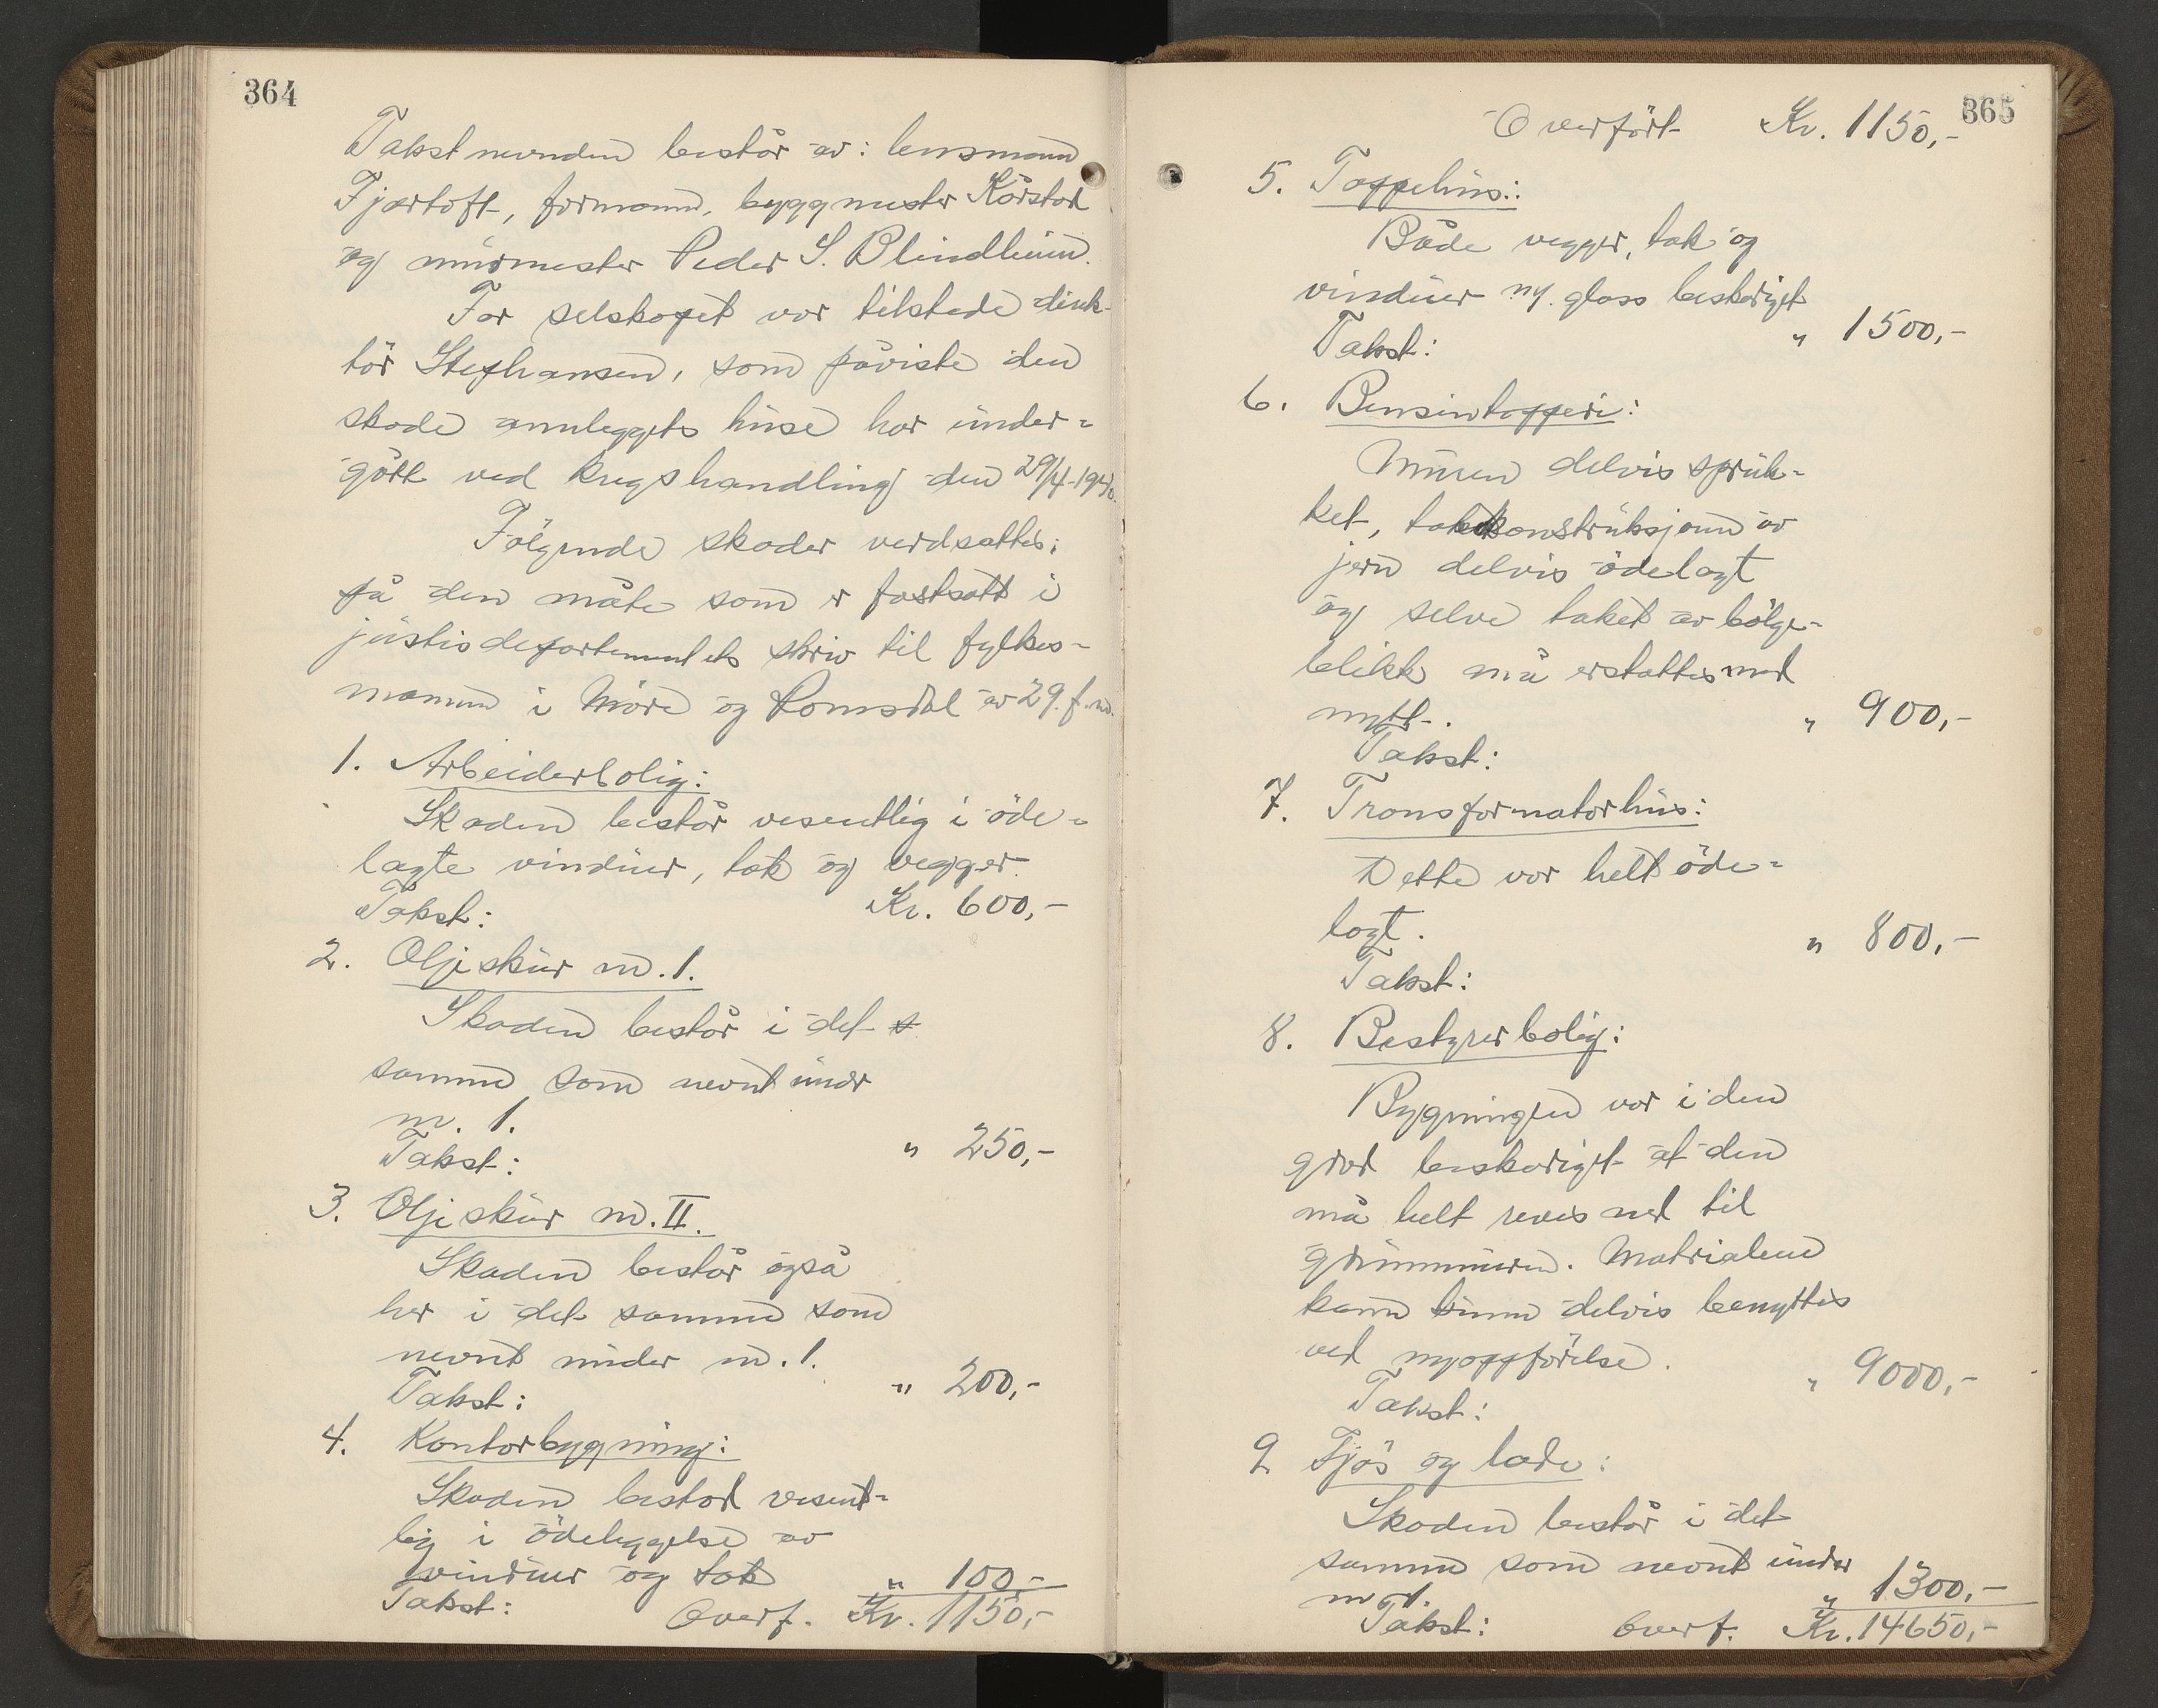 364
Takstnevnden består av: lensmann
Fjørtoft, formann, byggmester Kørstad
og murmester Peder S. Blindheim.
For selskapet var tilstede direk-
tör Stephansen, som påviste den
skade annleggets huse har under-
gått ved krigshandling den 29/4-1940.
Fölgende skader verdsattes:
på den måte som er fastsatt i
justisdepartementets skriv til fylkes-
mannen i Möre og Romsdal av 29. f. m.
1. Arbeiderbolig:
Skaden består vesentlig i öde-
lagte vinduer, tak og vegger.
Takst: Kr. 600,-
2. Oljeskur nr. 1.
Skaden består i det s
samme som nevnt under
nr. 1.
Takst: " 250,-
3. Oljeskur nr. II.
Skaden består også
her i det samme som
nevnt under nr. 1.
Takst: " 200,-
4. Kontorbygning:
Skaden bestod vesent-
lig i ödeleggelse av
vinduer og tak " 100,-
Takst: Overf. Kr. 1150,-
365
Overfört Kr. 1150,-
5. Tappehus:
Både vegger, tak og
vinduer m/ glass beskadiget
Takst: " 1500,-
6. Bensintapperi:
Muren delvis spruk-
ket, takkonstruksjonen av
jern delvis ödelagt
og selve taket av bölge-
blikk må erstattes med
nytt. " 900,-
Takst:
7. Transformatorhus:
Dette var helt öde-
lagt. " 800,-
Takst:
8. Bestyrerbolig:
Bygningen var i den
grad beskadiget at den
må helt reves ned til
grunnmuren. Matrialene
kann kunn delvis benyttes
ved nyoppförelse. " 9000,-
Takst:
9 Fjös og lade:
Skaden består i det
samme som nevnt under
nr 1. " 1300,-
Takst: Overf. Kr. 14650,-